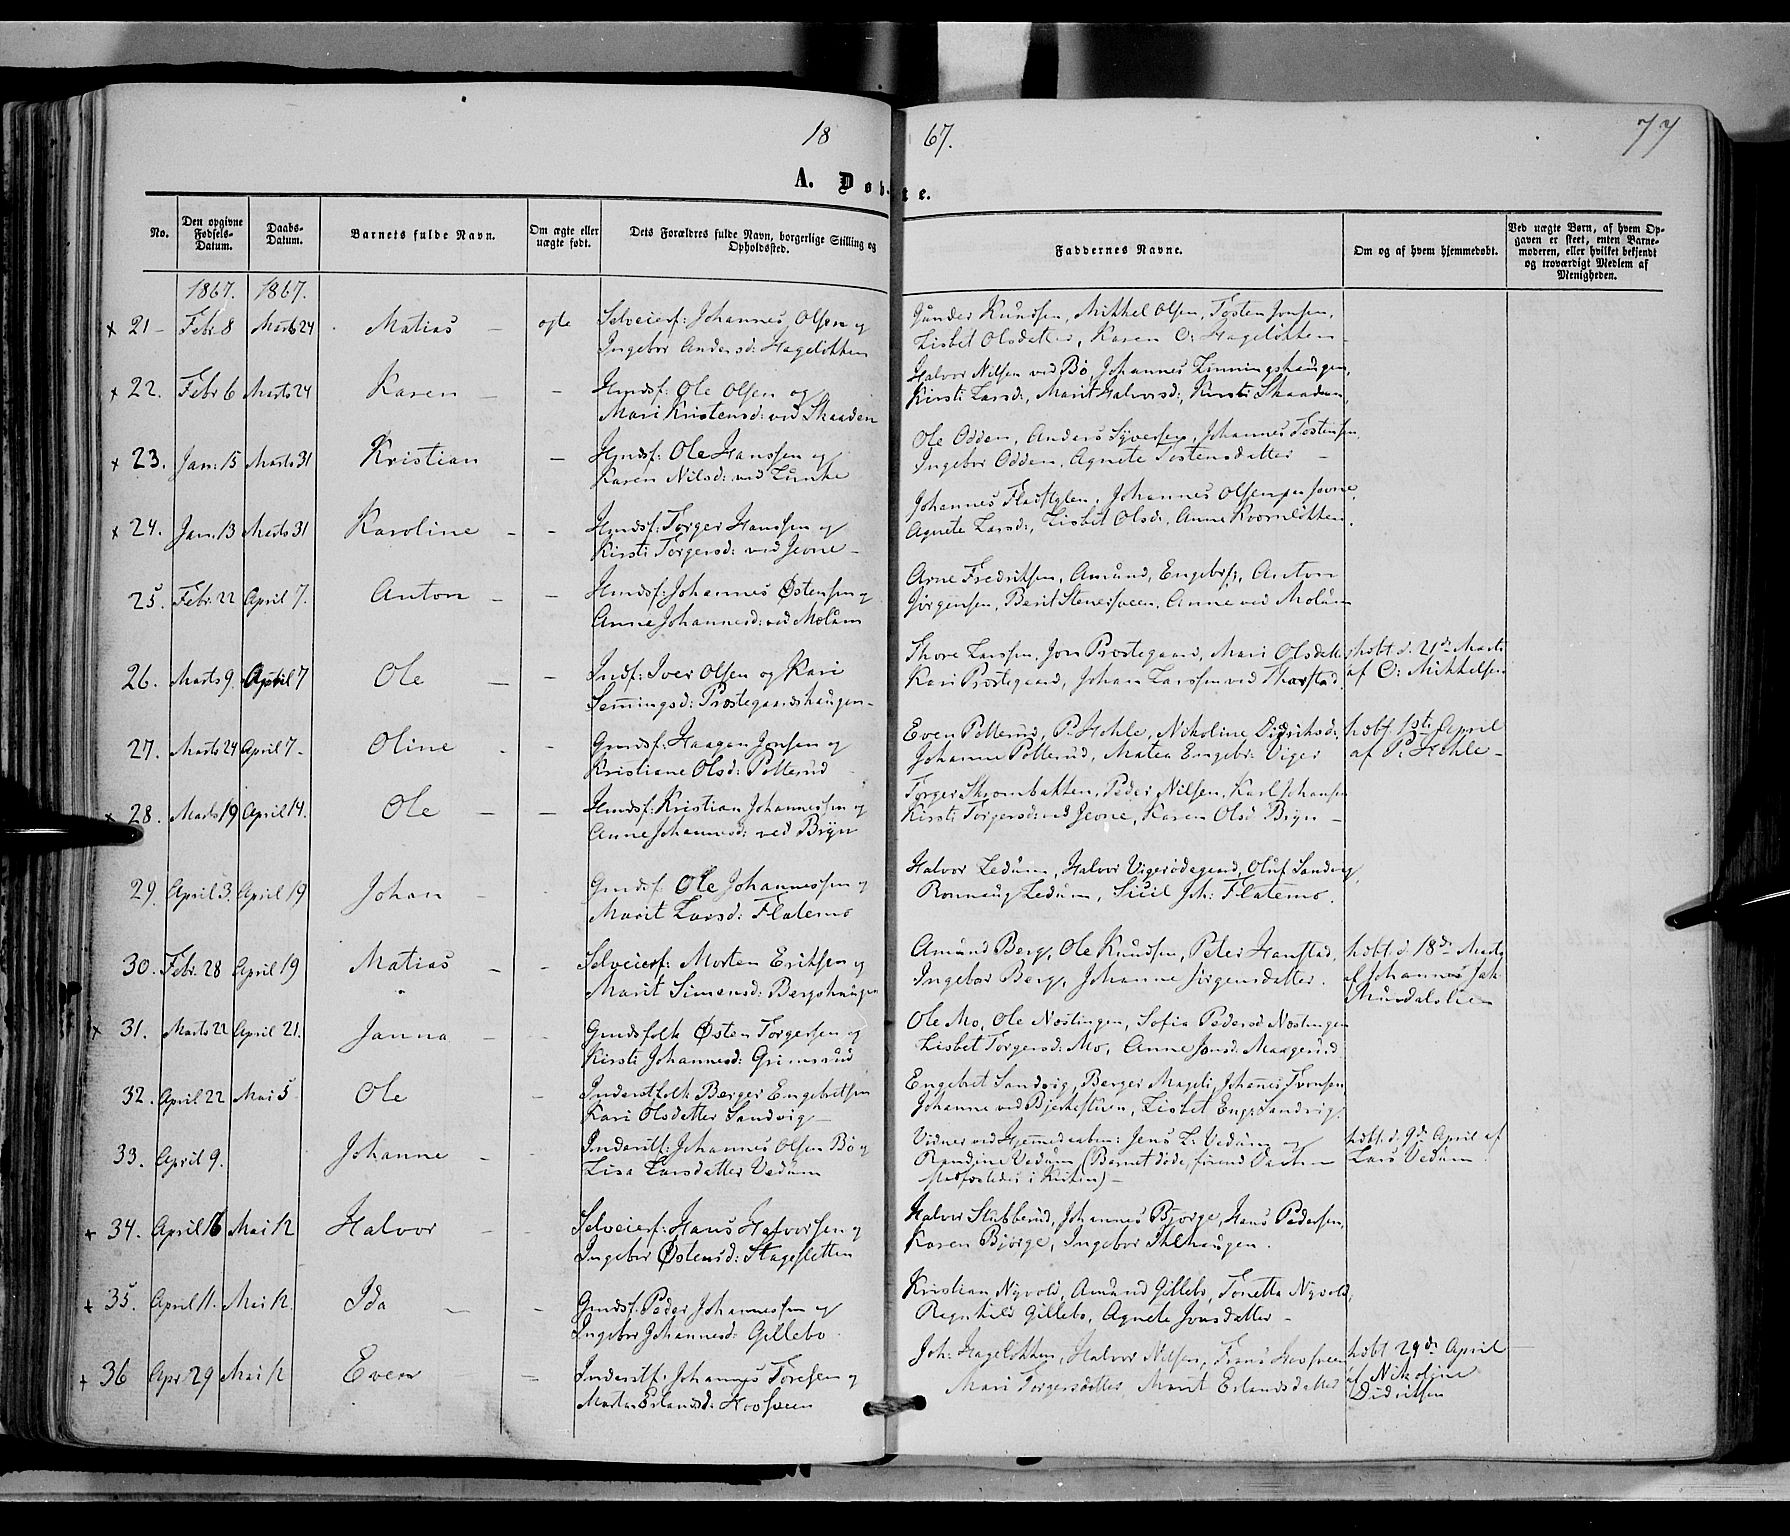 18 67. 77
A. Døbte.
No.
Den opgivne Fødsels-Datum.
Daabs-Datum.
Barnets fulde Navn.
Om ægte eller uægte født.
Dets Forældres fulde Navn, borgerlige Stilling og Opholdssted.
Faddernes Navne.
Om og af hvem hjemmedøbt.
Ved uægte Børn, af hvem Opgaven er skeet, enten Barnemoderen, eller hvilket bekjendt og troværdigt Medlem af Menigheden.
1867. 1867.
x 21 - Febr. 8 Marts 24 Matias - ægte Selveierf: Johannes Olsen og
Ingebor Andersd: Hageløkken
Gunder Knudsen, Mikkel Olsen, Tosten Jonsen,
Lisbet Olsdatter, Karen O: Hageløkken -
x 22. Febr 6 Marts 24 Karen - - Hmdsf: Ole Olsen og
Mari Kristensd: ved Skaaden
Halvor Nilsen ved Bø, Johannes Linningshaugen,
Kirsti Larsd:, Marit Halvorsd:, Kirsti Skaaden,
x 23. Jan. 15 Marts 31 Kristian - Hmdsf: Ole Hanssen og
Karen Nilsd: ved Lunke
Ole Odden, Anders Syversen, Johannes Tostensen,
Ingebor Odden, Agnete Tostensdatter -
x 24. Jan. 13 Marts 31 Karoline - - Hmdsf: Torger Hanssen og
Kirsti Torgersd: ved Jevne -
Johannes Fladstalen, Johannes Olsen Jevne,
Agnete Larsd:, Lisbet Olsd:, Anne Kvernløkken.
25. Febr. 22 April 7. Anton - - Hmdsf: Johannes Østensen og
Anne Johannesd: ved Molum
Arne Fredriksen, Amund, Engebr:, Anton
Jørgensen, Berit Stenersveen, Anne ved Molum
26. Marts 9. April 7 Ole - - Indf: Iver Olsen og Kari
Semmingsd: Prestegaardshaugen -
Thore Larssen, Jon Prestegaard, Mari Olsdatter
Kari Prestegaard, Johan Larssen ved Skarstad.
hdbt. d. 21de Marts
af O: Mikkelsen
27. Marts 24 April 7 - Oline - - Gmdsf: Haagen Jensen og
Kristiane Olsd: Potterud
Even Potterud, P. Hehle, Nikoline Didriksd:
Johanne Potterud, Matea Engebr: Viger
hdbt 1ste April
af P. Hehle -
x 28. Marts 19 April 14. Ole - - Hmdsf: Kristian Johannessen og
Anne Johannesd: ved Bryn
Torger Skrombakken, Peder Nilsen, Karl Johansen
Kirsti Torgersd: ved Jevne, Karen Olsd Bryn -
29. April 3. April 19 Johan - Gmdsf: Ole Johannessen og
Marit Larsd: Flatemo
Halvor Ledum, Halvor Vigerødegaard, Oluf Sandvig,
Ronnaug Ledum, Sicil Joh: Flatemo.
30. Febr. 28 April 19 Matias - - Selveierf: Morten Eriksen og
Marit Simensd: Bergshaugen
Amund Berg, Ole Knudsen, Peter Hanstad,
Ingebor Berg, Johanne Jørgensdatter.
hdbt d. 18de Marts
af Johannes Joh
Mundalslien
x 31. Marts 22 April 21. Janna - - Gmdsfolk Østen Torgersen og
Kirsti Johannesd: Grimsrud
Ole Mo, Ole Nostingen, Sofia Pedersd Nostingen
Lisbet Torgersd: Mo, Anne Jonsd: Maagerud
32. April 22 Mai 5 Ole - Inderstfolk Berger Engebretsen
Kari Olsdatter Sandvig -
Engebret Sandvig, Berger Mageli, Johannes Ivonsen
Johanne ved Bjerkestuen, Lisbet Eng: Sandvig.
33. April 9. Johanne - - Inderstf: Johannes Olsen Bø og
Lisa Larsdatter Vedum
Vidner ved Hjemmedaaben: Jens L. Vedum og
Randine Vedum (Barnet døde, førend Daaben
stadfæstedes i Kirken) -
hdbt. d. 9de April af
Lars Vedum
x 34. April 16 Mai 12 Halvor - - Selveierf: Hans Halvorsen og
Ingebor Østensd: Stagesletten
Halvor Stubberud, Johannes Bjørge, Hans Pedersen,
Karen Bjørge, Ingebor Ihlehaugen.
x 35. April 11. Mai 12. Ida - - Gmdsf: Peder Johannessen og
Ingebor Johannesd: Gillebo.
Kristian Nyvold, Amund Gillebo, Tonetta Nyvold,
Regnhild Gillebo, Agnete Jonsdatter -
x 36 Apr. 29 Mai 12 Even - Inderstf: Johannes Toresen og
Marta Erlandsd: Hoosveen
Joh: Hageløkken, Halvor Nilsen, Frans Hoosveen
Mari Torgersdatter, Marit Erlandsdatter
hdbt 29de April
af Nikoline
Didriksen